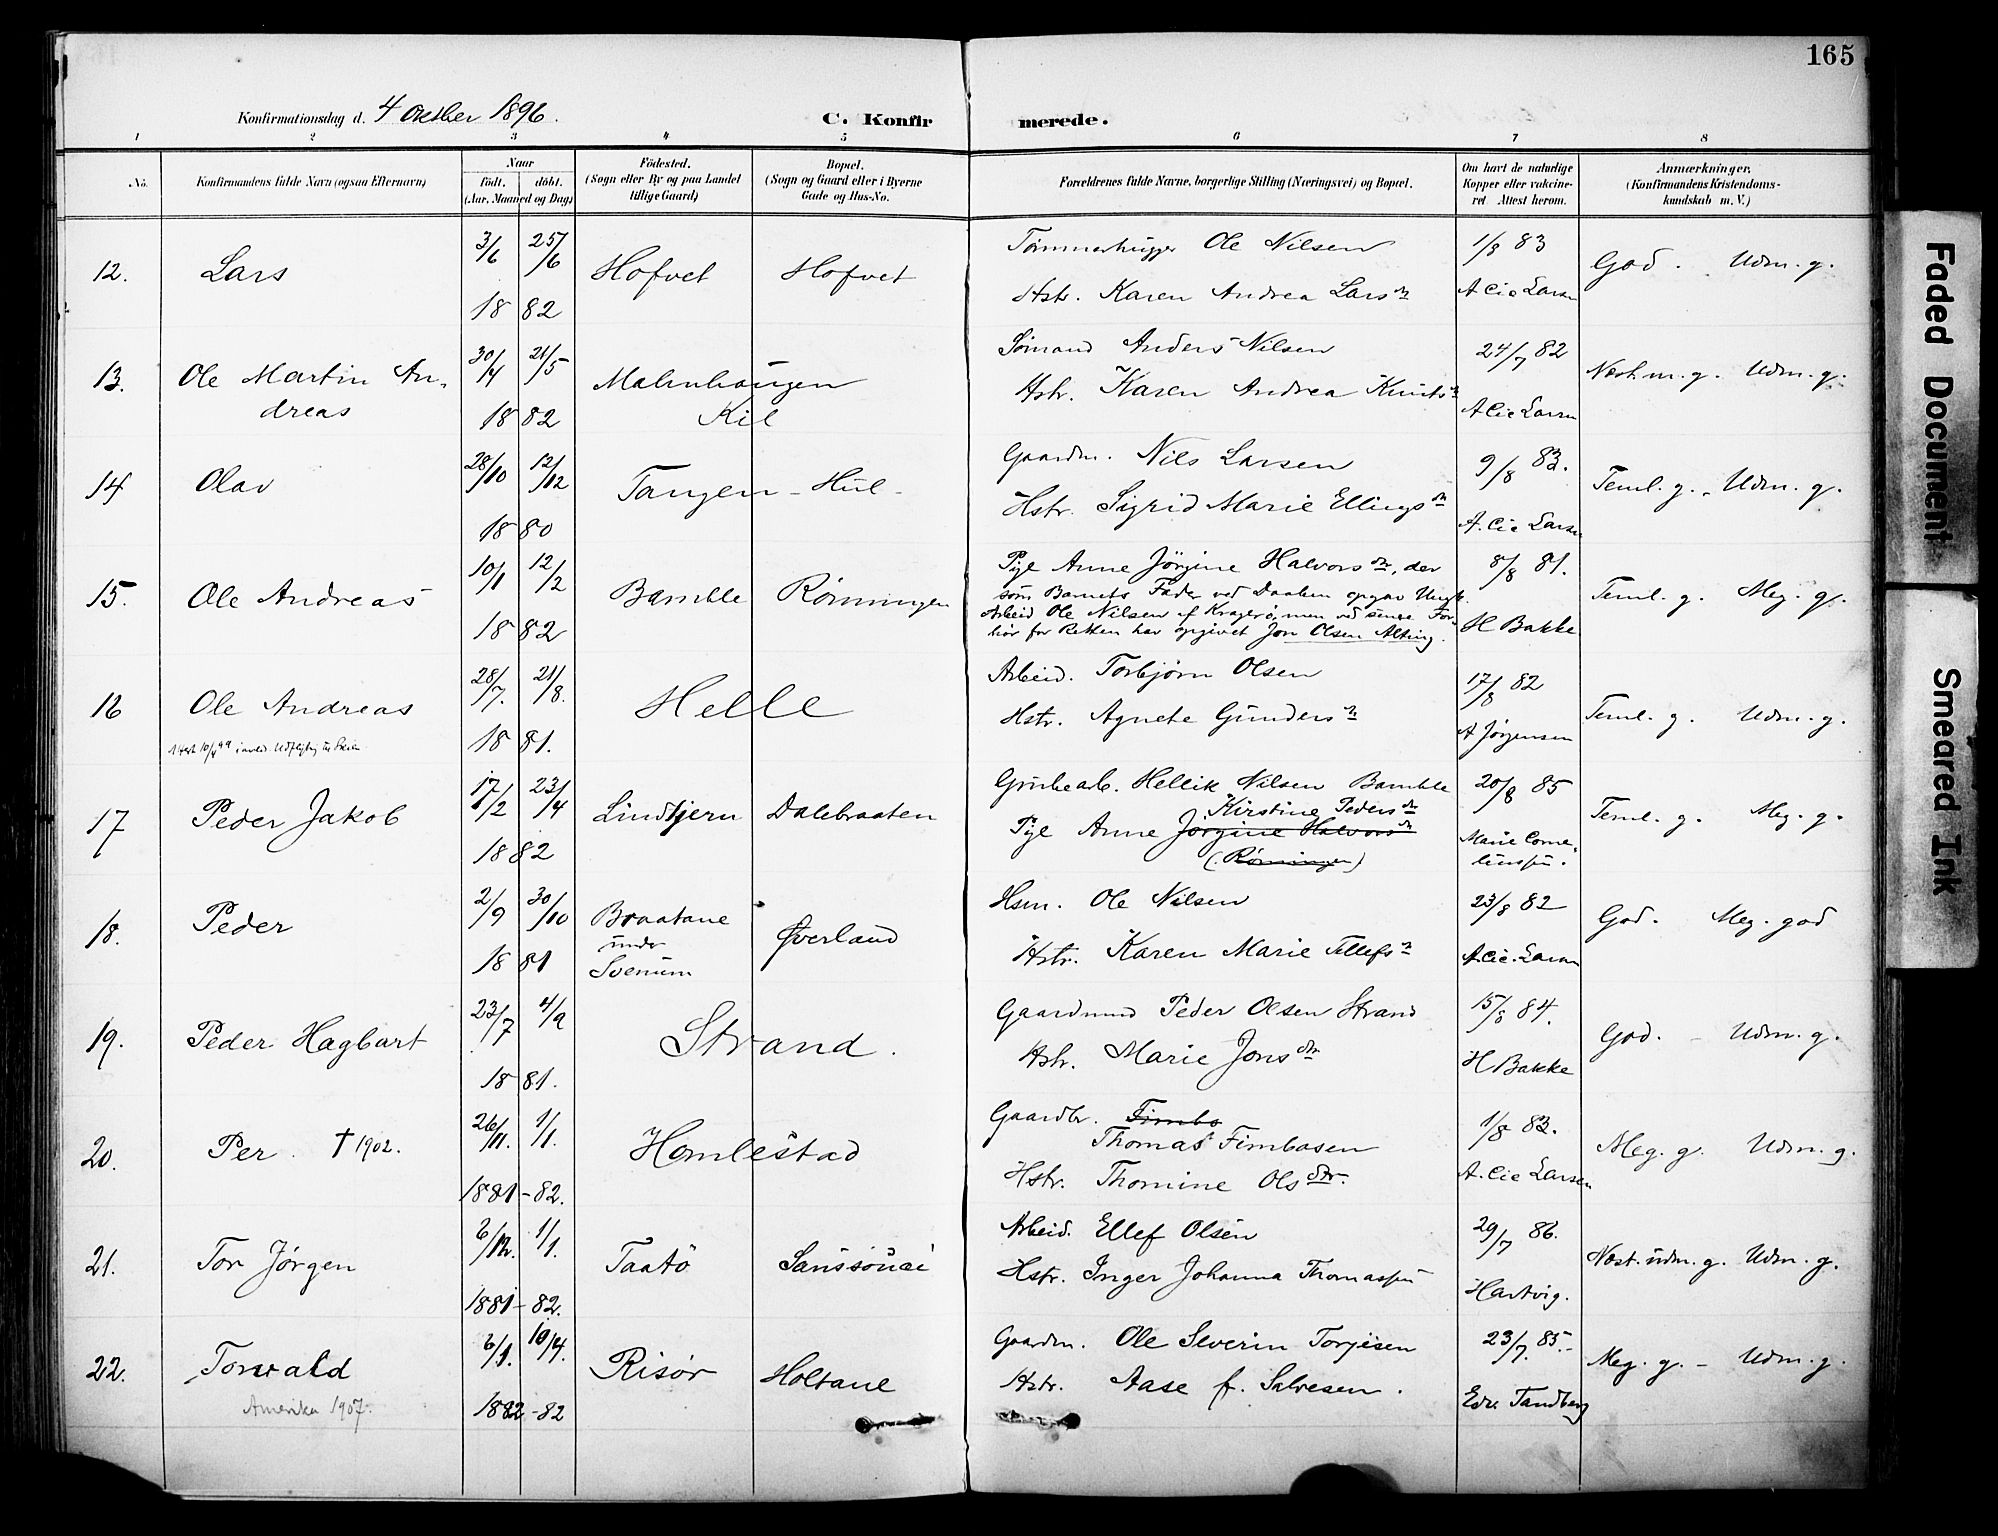 165
Konfirmationsdag d. 4 October 1896. C. Konfir merede.
1 2 3 4 5 6 7 8
No. Konfirmandens fulde Navn (ogsaa Efternavn) Naar födt. döbt. (Aar, Maaned og Dag) Födested. (Sogn eller By og paa Landet tillige Gaard) Bopæl. (Sogn og Gaard eller i Byerne Gade og Hus-No. Forældrenes fulde Navne, borgerlige Stilling (Næringsvei) og Bopæl. Om havt de naturlige Kopper eller vakcineret Attest herom. Anmærkninger. (Konfirmandens Kristendomskundskab m. V.)
12. Lars 3/6 25/6 Hofvet Hofvet Tømmerhugger Ole Nilsen 1/8 83 God. Udm. g.
18 82 Hstr. Karen Andrea Larsdr A Cie Larsen
13. Ole Martin An- 30/4 21/5 Malmhaugen Sømand Anders Nilsen 24/7 82 Næst m. g. Udm. g.
dreas 18 82 Kil Hstr. Karen Andrea Knutsdr A Cie Larsen
14 Olav 28/10 12/12 Tangen - Hul - Gaardm. Nils Larsen 9/8 83. Teml. g. Udm. g.
18 80 Hstr. Sigrid Marie Ellingsdr A. Cie Larsen
15. Ole Andreas 10/1 12/2 Bamble Rønningen Pige Anne Jørgine Halvorsdr, der 8/8 81. Teml. g. Meg. g.
som Barnets Fader ved Daaben opgav Ungk.
Arbeid Ole Nilsen af Kragerø, men ved senere For-
18 82 hør for Retten har opgivet Jon Olsen Alting. H Bakke
16 Ole Andreas 28/7. 21/8. Helle Arbeid. Torbjørn Olsen 17/8 82 Teml. g. Udm. g.
Attest 10/4 99 Udflytng til Skien 18 81. Hstr. Agnete Gundersdr A Jørgensen
17 Peder Jakob 17/2 23/4 Lindtjern Dalebraaten Grubearb. Hellik Nilsen Bamble 20/8 85 Teml. g. Meg. g.
Kirstine Pedersdr
18 82 Pige Anne Jørgine Halvorsdr Marie Corne-
(Rønningen) liussen.
18. Peder 2/9 30/10 Braatane Øverland Hsm. Ole Nilsen 23/8 82 God. Meg. god
under
18 81 Svenum Hstr. Karen Marie Tellefsdr A. Cie. Larsen
19. Peder Hagbart 23/7 4/9 Strand. Gaardmand Peder Olsen Strand 15/8 84. God. - Udm. g.
18 81. Hstr. Marie Jonsdtr H Bakke
20. Per † 1902. 26/11. 1/1. Homlestad Gaardbr. Fimbo 1/8 83. Meg. g. Udm. g.
Thomas Fimbosen
1881 - 82. Hstr. Thomine Olsdtr. A. Cie Larsen
21. Tor Jørgen 6/12. 1/1. Taatö Sanssouci Arbeid. Ellef Olsen 29/7 86. Næst. udm. g. Udm. g.
1881 - 82. Hstr. Inger Johanna Thomassen Hartvig.
22. Torvald 6/1. 10/4. Risör Holtane Gaardm. Ole Severin Torjesen 23/7. 85. Meg. g. - Udm. g.
Amerika 1907. 1882 - 82 Hstr. Aase f. Salvesen. Edv. Tandberg
Faded Document
Smeared Ink